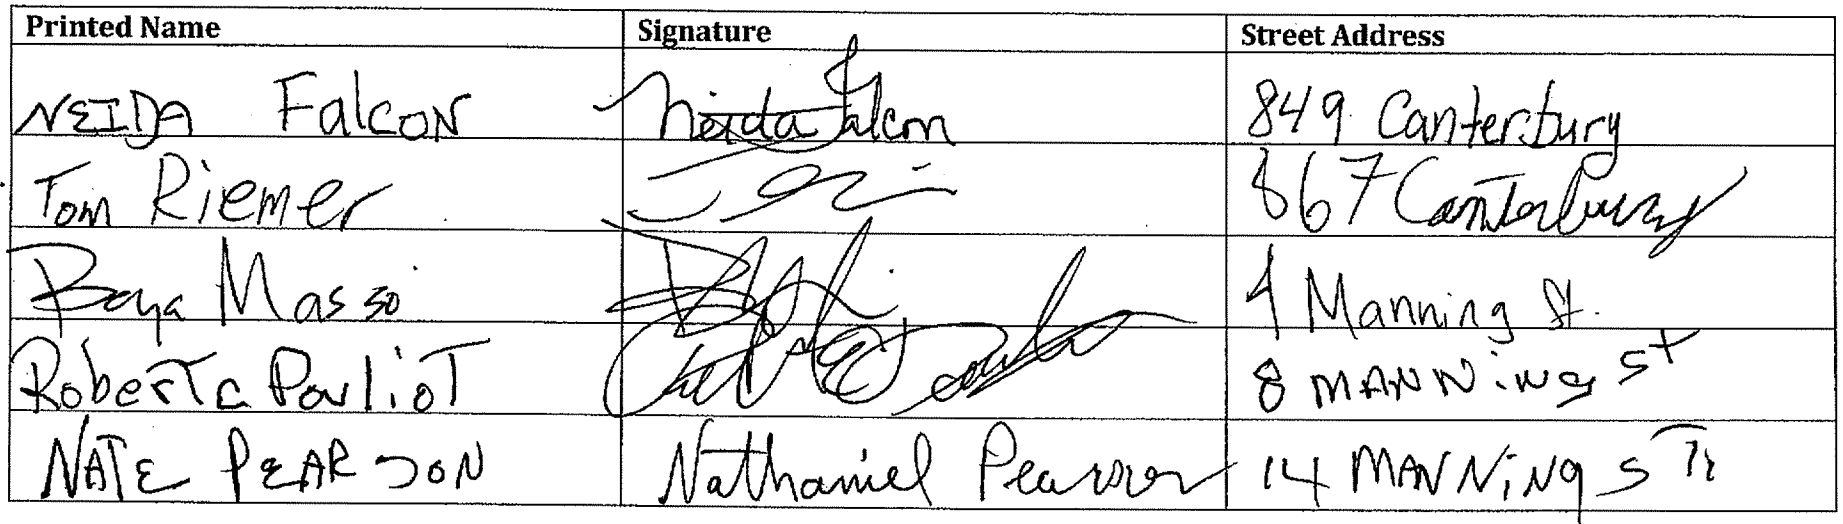 Printed Name Signature Street Address
NEIDA Falcon Neida Falcon 849 Canterbury
Tom Riemer 867 Canterbury
Masso 4 Manning St.
Roberta Pouliot 8 MANNiNg St
NATE PEARSON Nathaniel Pearson 14 MANNiNg ST